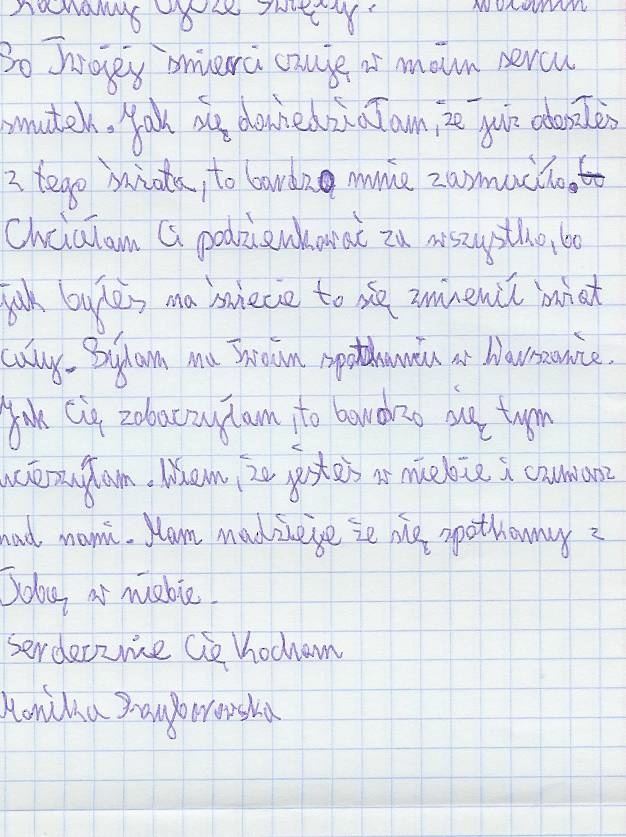 Kochany Ojcze święty. Wołomin
Po Twojej śmierci czuję w moim sercu
smutek. Jak się dowiedziałam, że już odeszłeś
z tego świata, to bardzo mnie zasmuciło. bo
Chciałam Ci podzienkować za wszystko, bo
jak byłeś na świecie to się zmienił świat
cały. Byłam na Twoim spotkaniu w Warszawie.
Jak Cię zobaczyłam, to bardzo się tym
ucieszyłam. Wiem, że jesteś w niebie i czuwasz
nad nami. Mam nadzieje że się spotkamy z
Tobą w niebie.
Serdecznie Cię Kocham
Monika Przyborowska